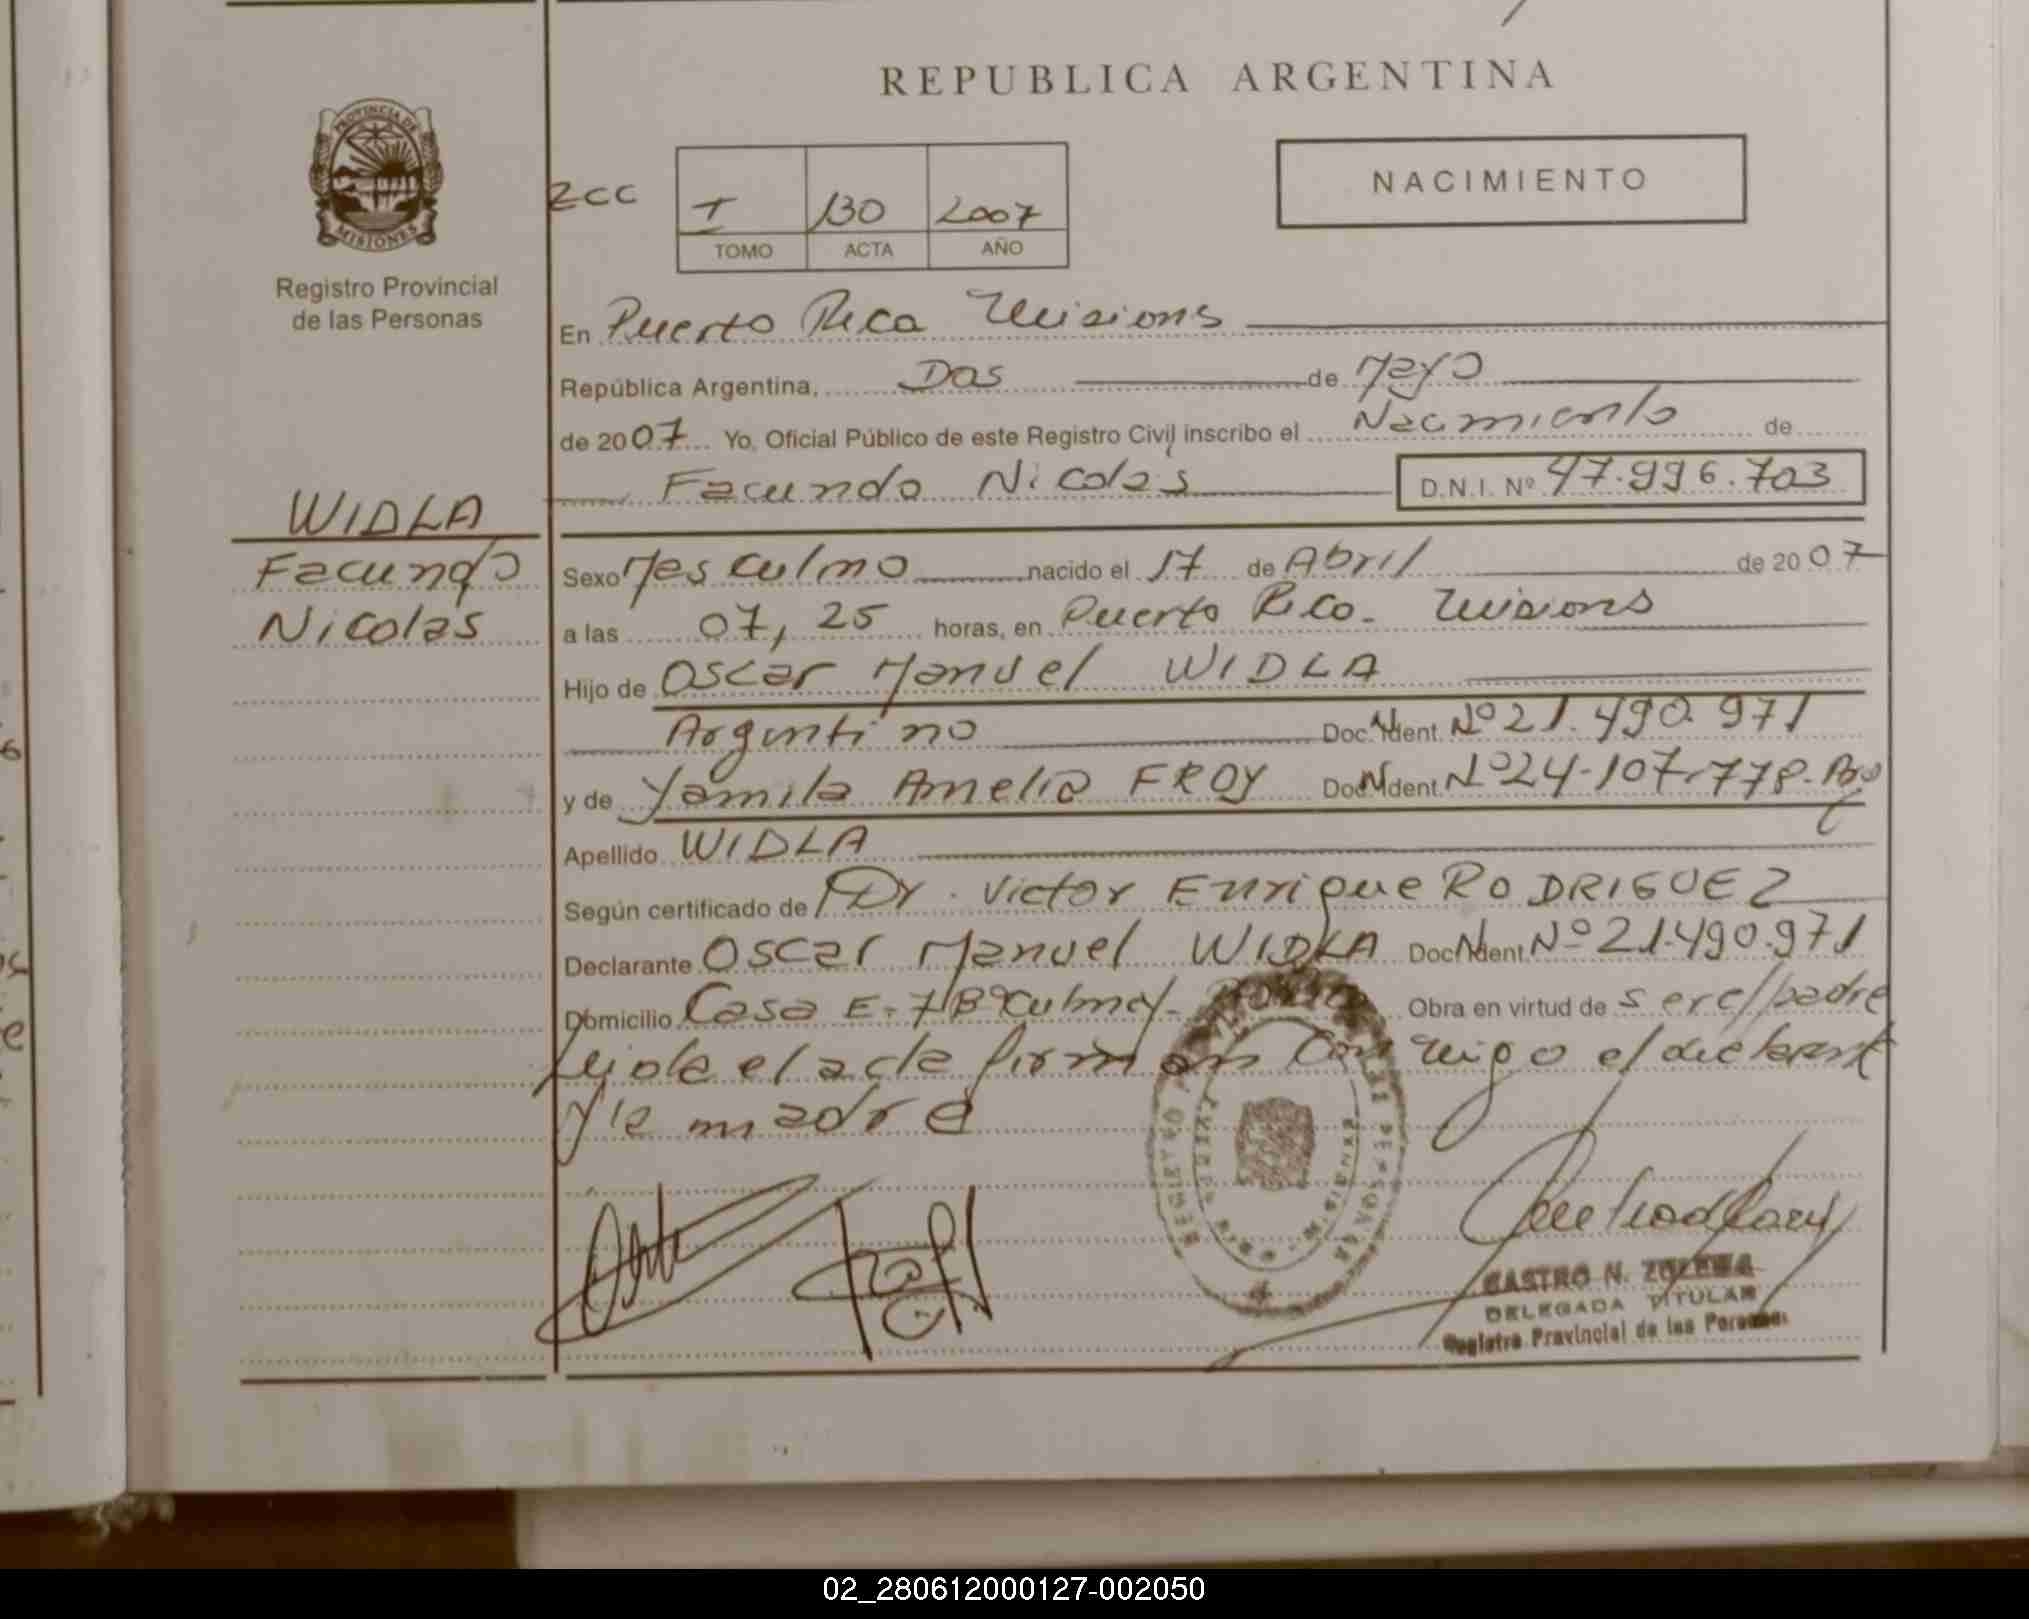 REPUBLICA ARGENTINA
PROVINCIA DE
MISIONES
Registro Provincial
de las Personas
2CC
I 130 2007
TOMO ACTA AÑO
NACIMIENTO
En Puerto Rico Misiones
República Argentina, Dos de Mayo
de 2007 Yo, Oficial Público de este Registro Civil inscribo el Nacimiento de
Facundo Nicolas D.N.I. Nº 47.996.703
WIDLA
Facundo
Nicolas
Sexo Masculino nacido el 17 de Abril de 2007
a las 07,25 horas, en Puerto Rico. Misiones
Hijo de Oscar Manuel WIDLA
Argentino Doc. N Ident. Nº 21.490.971
y de Yamila Amelia FROY Doc. N Ident. Nº 24-107.778.
Apellido WIDLA
Según certificado de Dr. Victor Enrique RODRIGUEZ
Declarante Oscar Manuel WIDLA Doc. N Ident. Nº 21.490.971
Domicilio Casa E-7 Obra en virtud de ser el padre
el acta firman conmigo el declarante
y la madre
CASTRO N. ZULEMA
DELEGADA TITULAR
Registro Provincial de las Personas
02_280612000127-002050